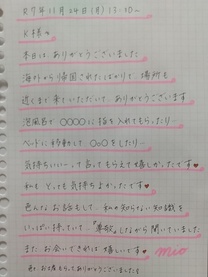 R7年11月24日(月)13:30〜
K様へ
本日は、ありがとうございました
海外から帰国されたばかりで、場所も
近くまで来ていただいて、ありがとうございます
泡風呂で〇〇〇〇に指を入れてもらったり…
ベッドに移動して、〇〇〇をしたり…
気持ちいい…って言ってもらえて嬉しかったです♥
私も、とっても気持ちよかったです♥
色んなお話もして、私の知らない知識を
いっぱい持っていて、『意欲』しながら聞いていました
また、お会いできれば嬉しいです♥ mco